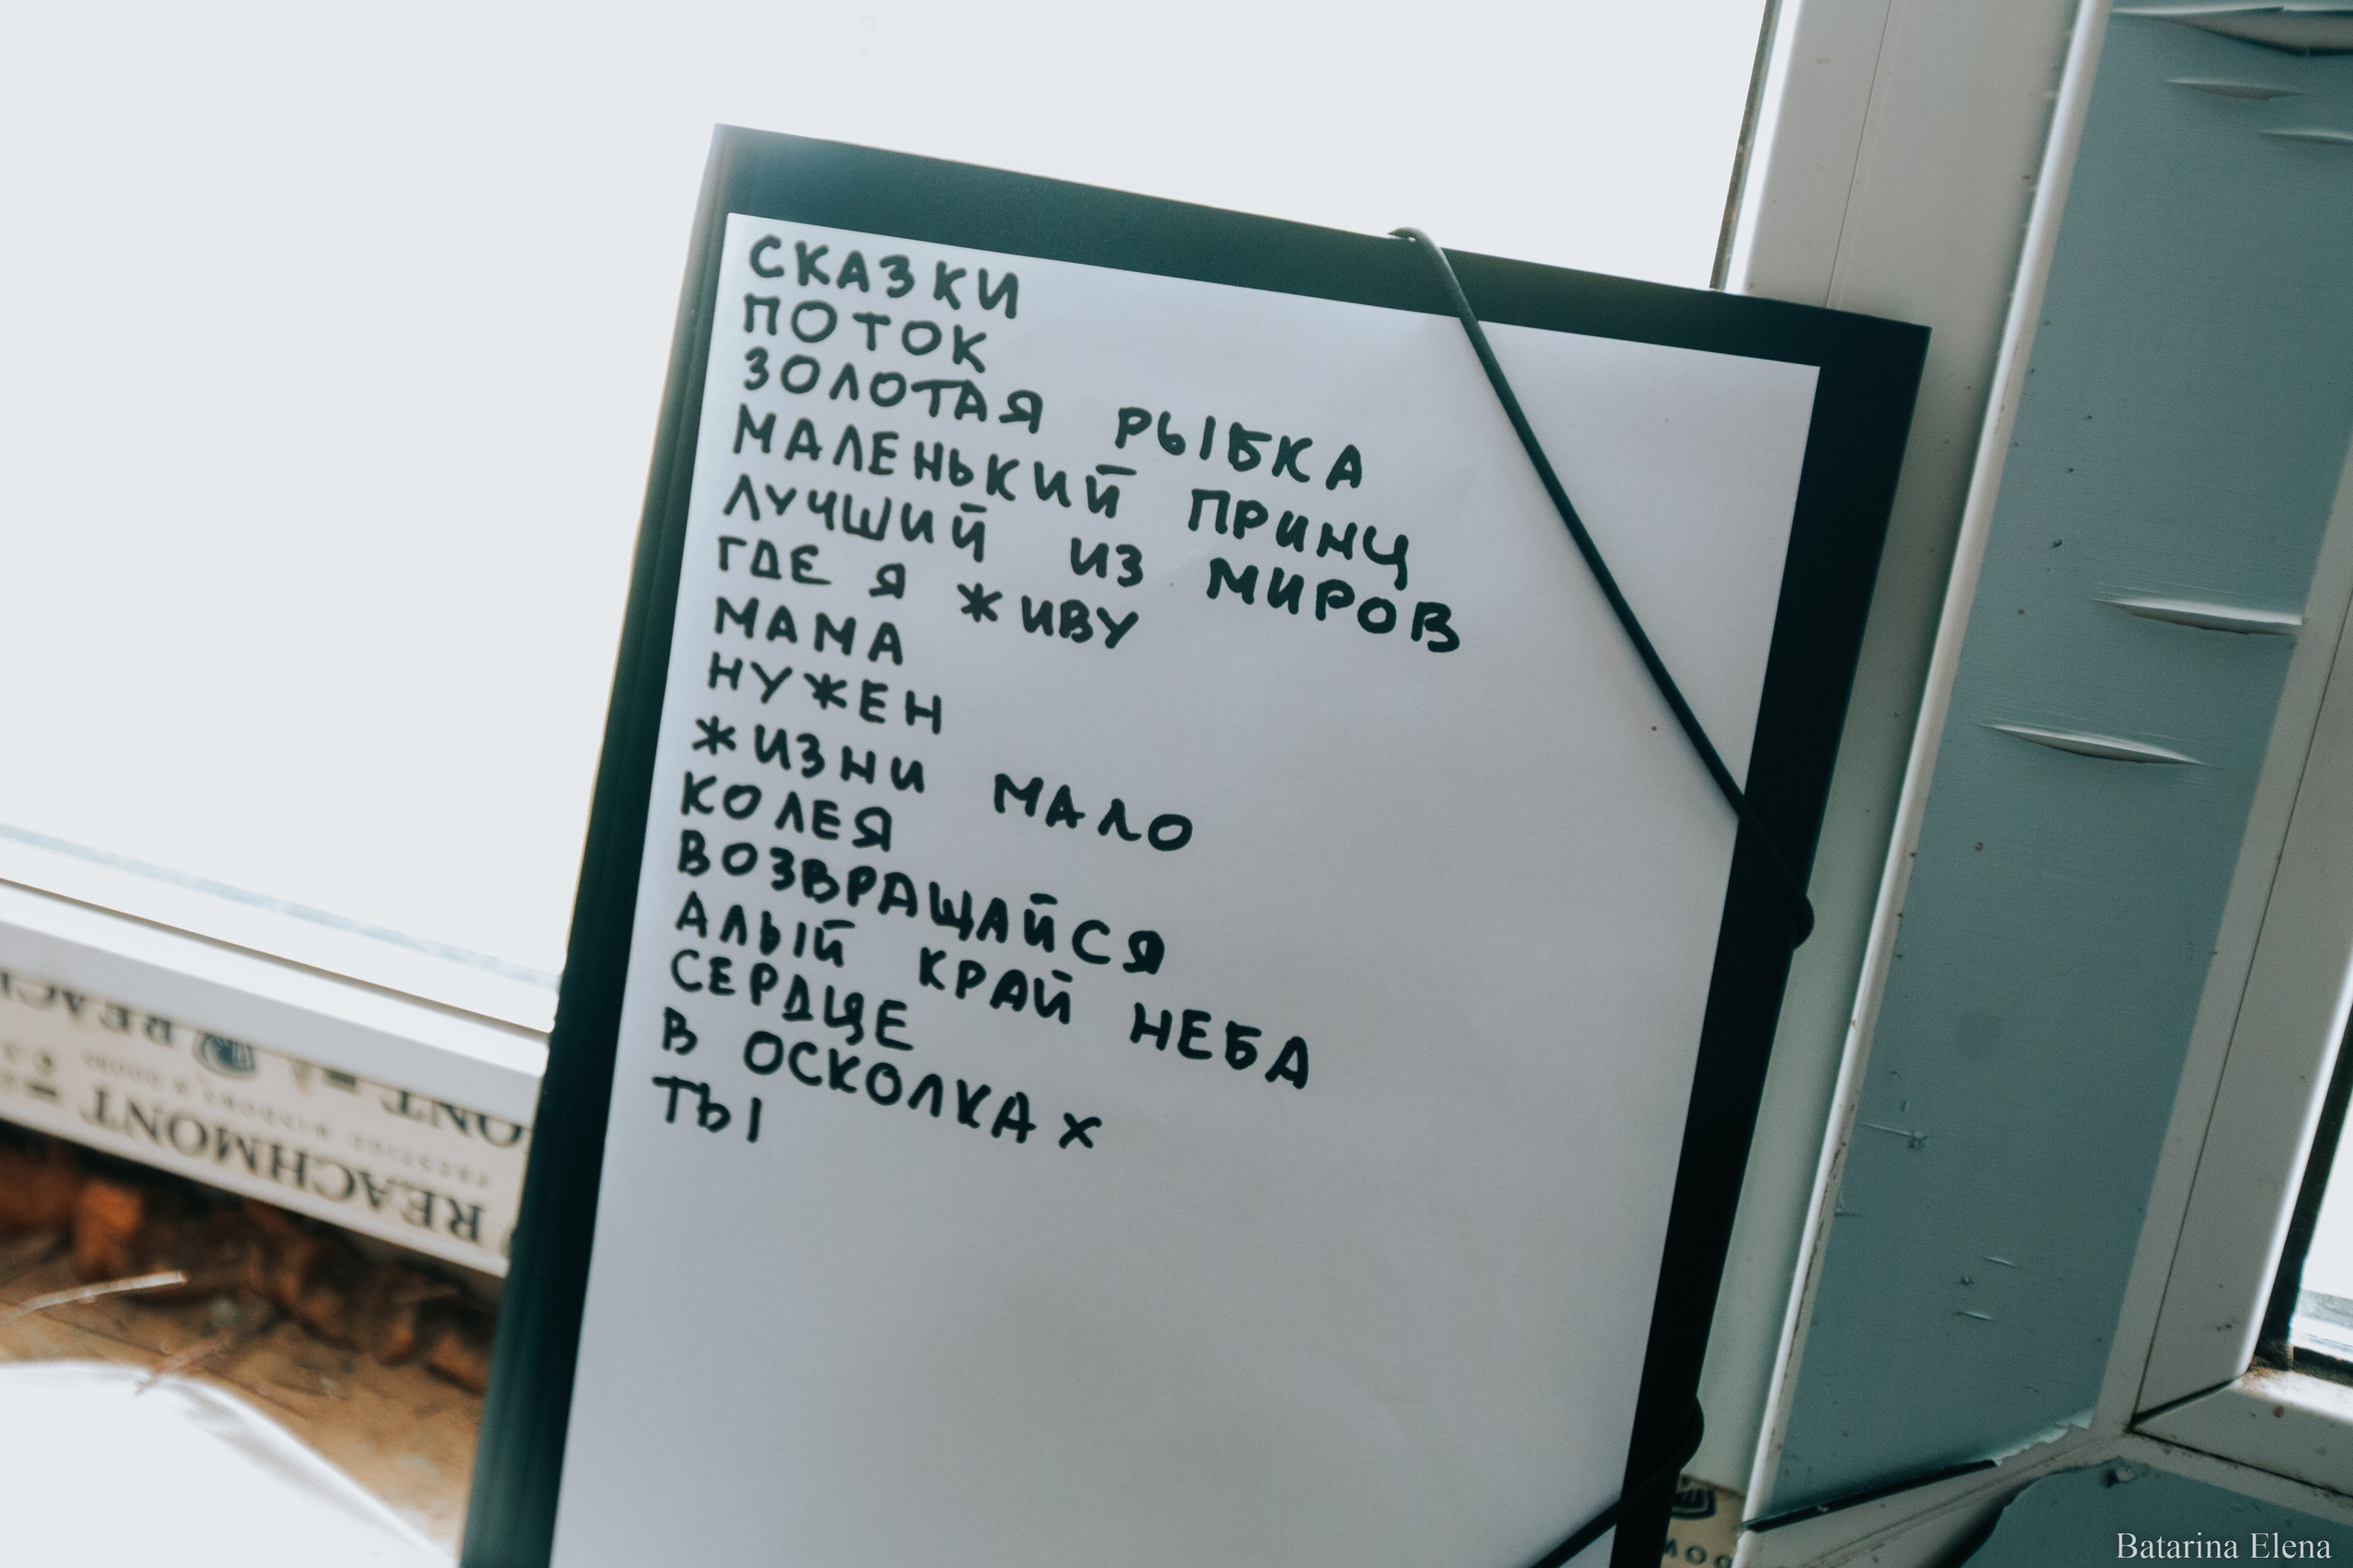 СКАЗКИ
ПОТОК
ЗОЛОТАЯ РЫБКА
МАЛЕНЬКИЙ ПРИНЦ
ЛУЧШИЙ ИЗ МИРОВ
ГДЕ Я ЖИВУ
МАМА
НУЖЕН
ЖИЗНИ МАЛО
КОЛЕЯ
ВОЗВРАЩАЙСЯ
АЛЫЙ КРАЙ НЕБА
СЕРДЦЕ
В ОСКОЛКАХ
ТЫ
REACHMONT
Batarina Elena